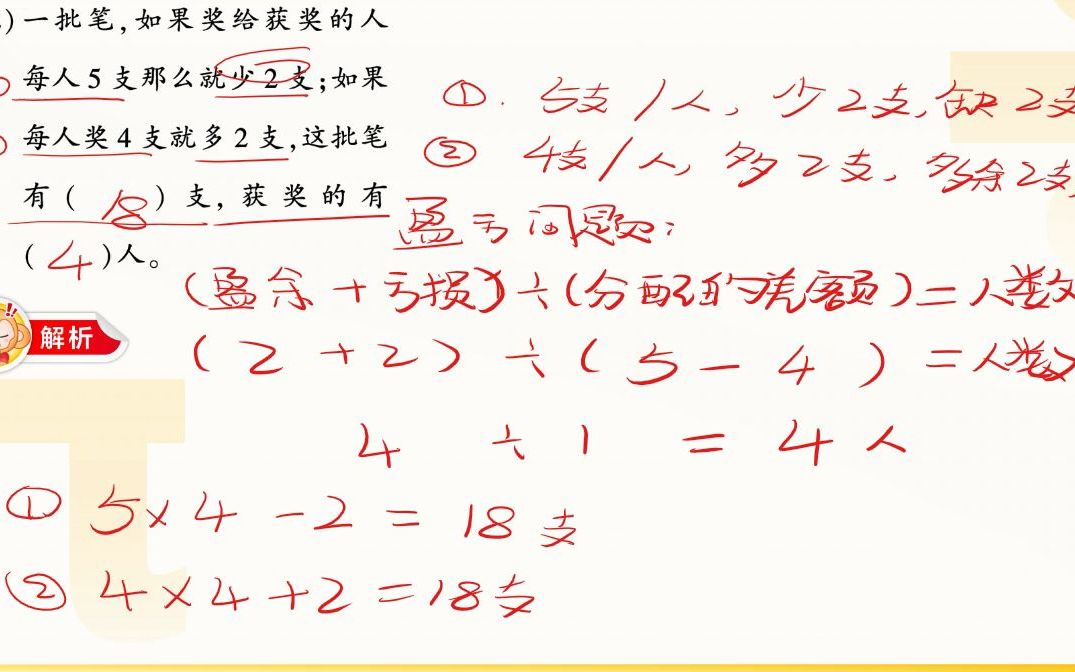 )一批笔,如果奖给获奖的人
每人5支那么就少2支;如果
每人奖4支就多2支,这批笔
有(18)支,获奖的有
(4)人。
①. 5支/人,少2支,缺2支
②4支/人,多2支,多余2支
盈亏问题:
(盈余+亏损)÷(分配的差额)=人数
(2+2)÷(5-4)=人数
4÷1=4人
解析
①5×4-2=18支
②4×4+2=18支